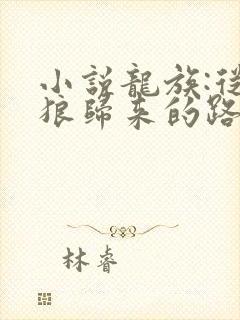 小說龍族:從
狼歸来的路
林睿